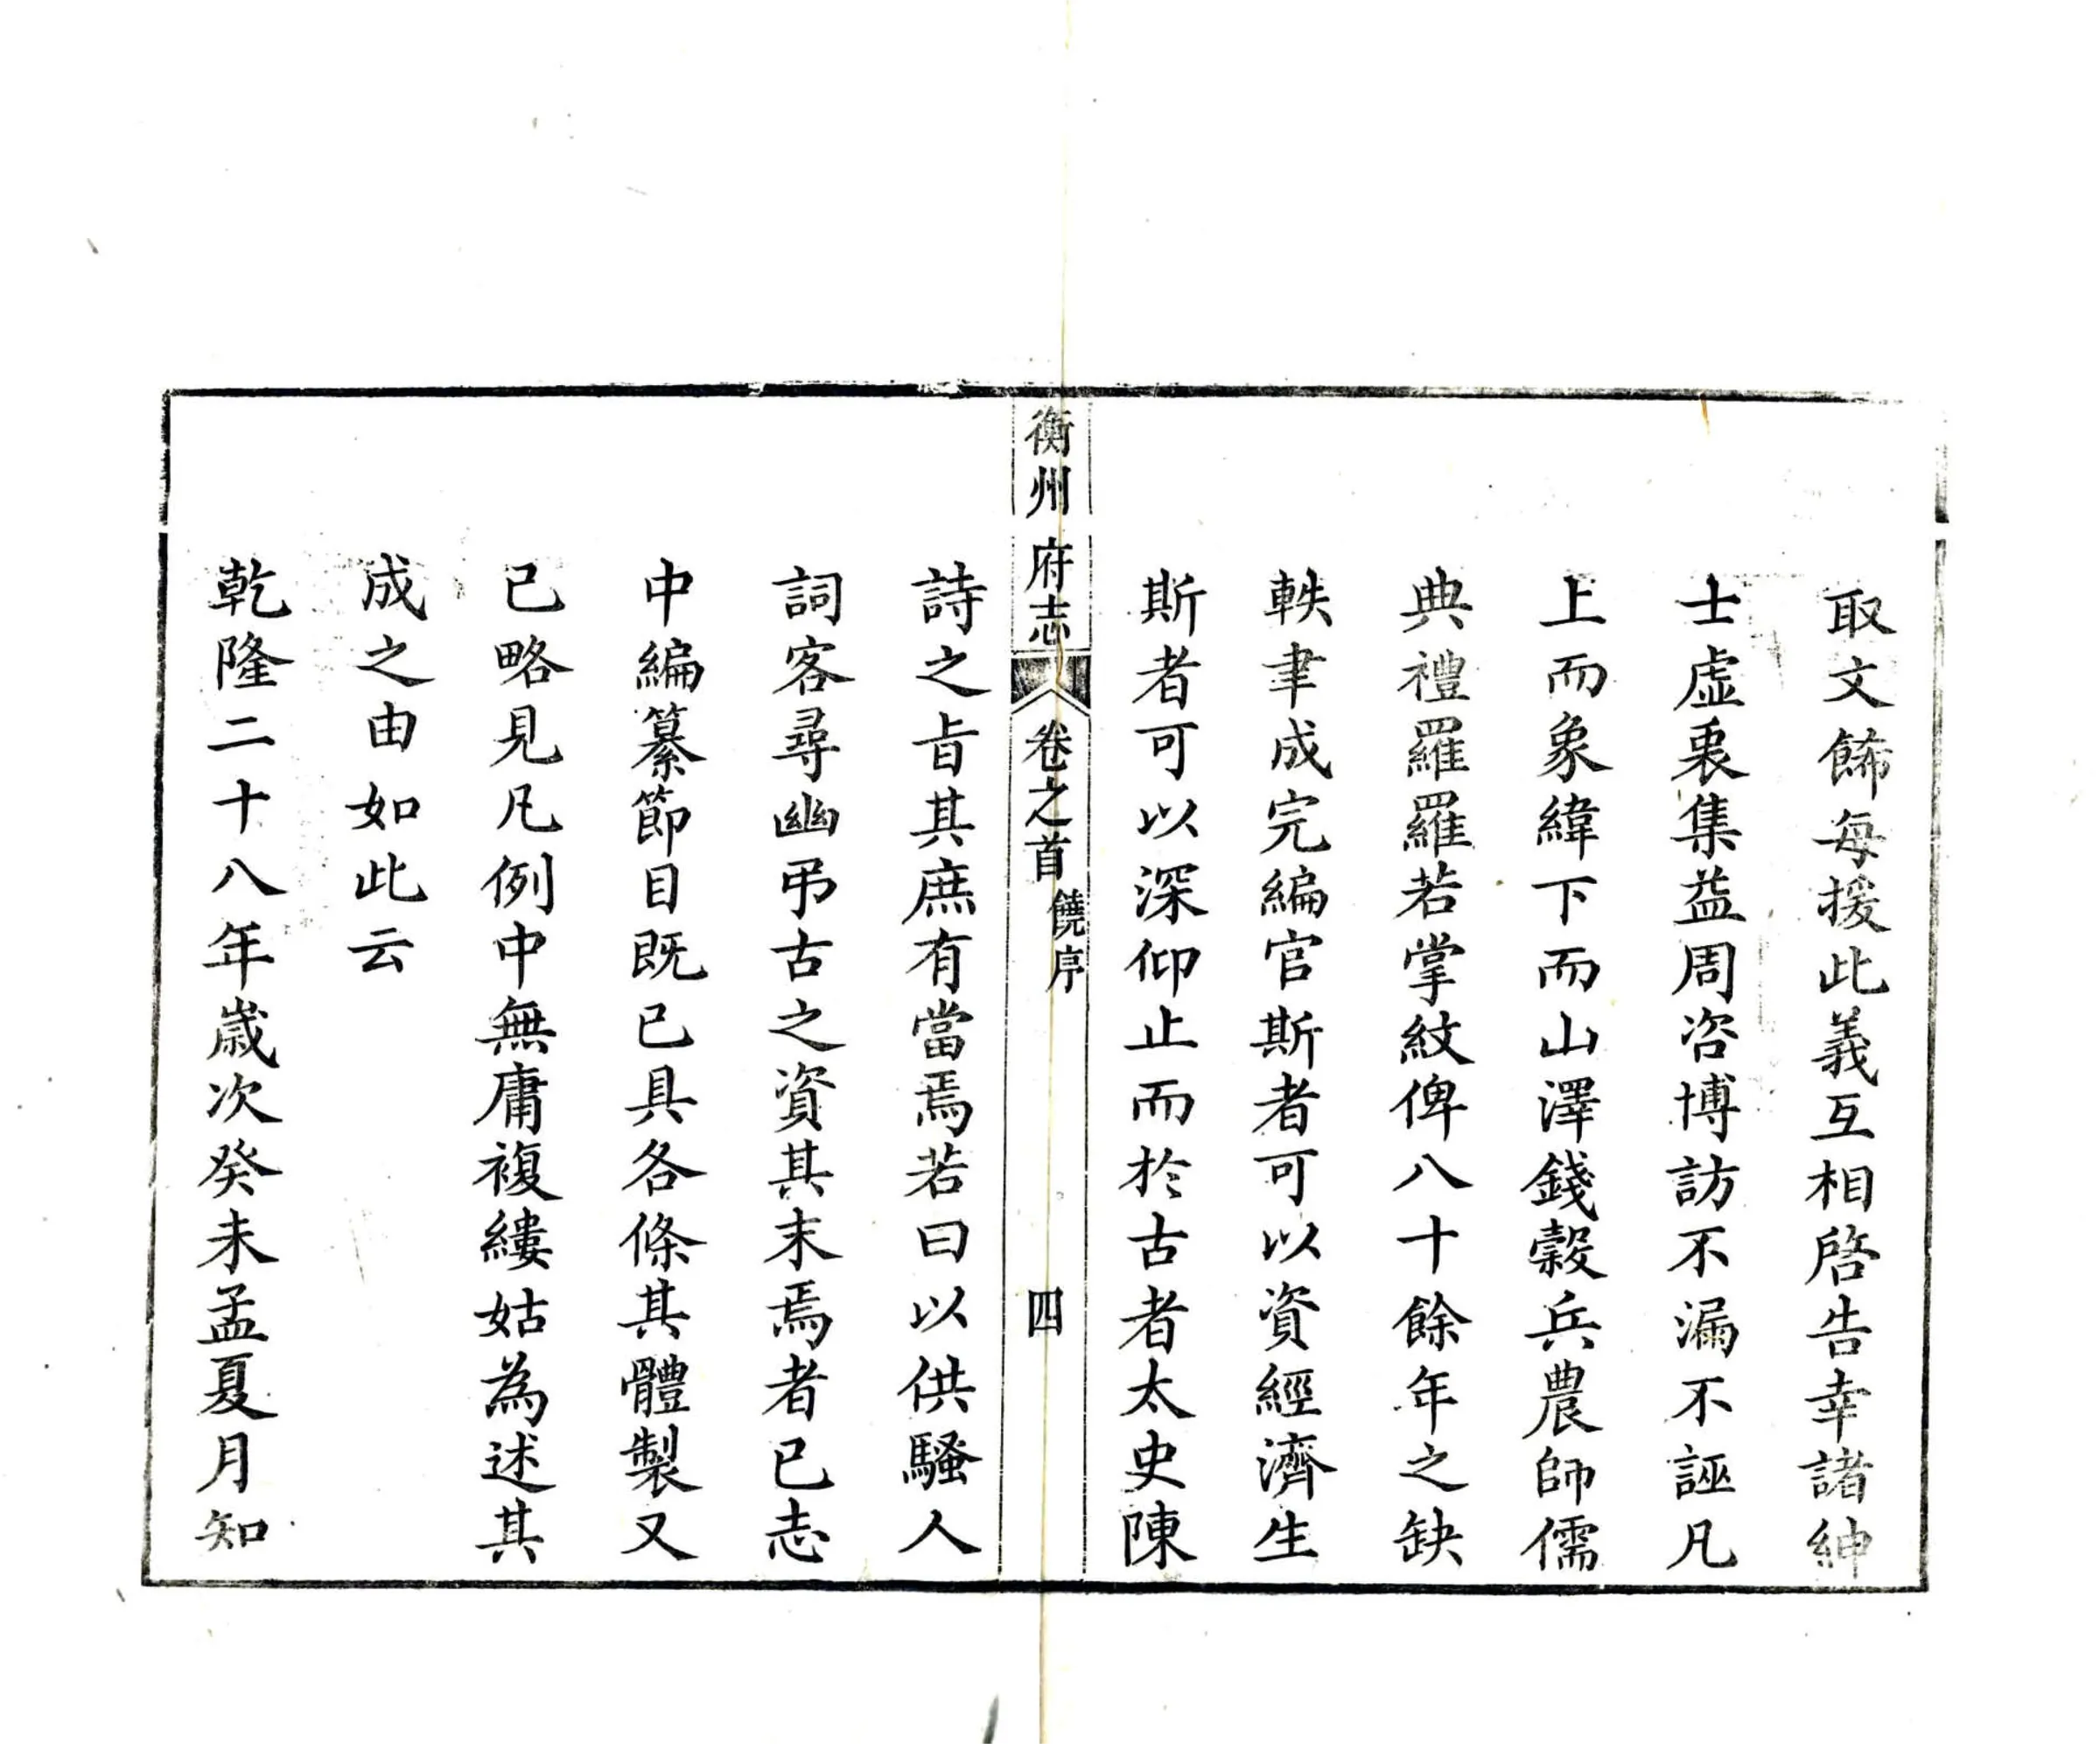 取文飾每援此義互相啓告幸諸紳
士虛衷集益周咨博訪不漏不誣凡
上而象緯下而山澤錢糓兵農師儒
典禮羅羅若掌紋俾八十餘年之缺
軼聿成完編官斯者可以資經濟生
斯者可以深仰止而於古者太史陳
衡州府志
卷之首
饒序
四
詩之旨其庶有當焉若曰以供騷人
詞客尋幽弔古之資其末焉者已志
中編纂節目既已具各條其體製又
已略見凡例中無庸複縷姑為述其
成之由如此云
乾隆二十八年歲次癸未孟夏月知